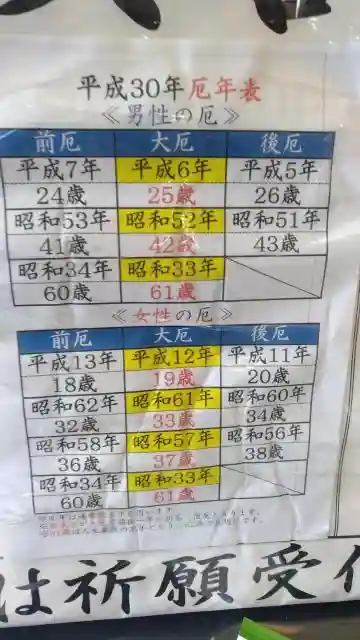 平成30年厄年表
≪男性の厄≫
前厄 大厄 後厄
平成7年 平成6年 平成5年
24歳 25歳 26歳
昭和53年 昭和52年 昭和51年
41歳 42歳 43歳
昭和34年 昭和33年
60歳 61歳
≪女性の厄≫
前厄 大厄 後厄
平成13年 平成12年 平成11年
18歳 19歳 20歳
昭和62年 昭和61年 昭和60年
32歳 33歳 34歳
昭和58年 昭和57年 昭和56年
36歳 37歳 38歳
昭和34年 昭和33年
60歳 61歳
は祈願受